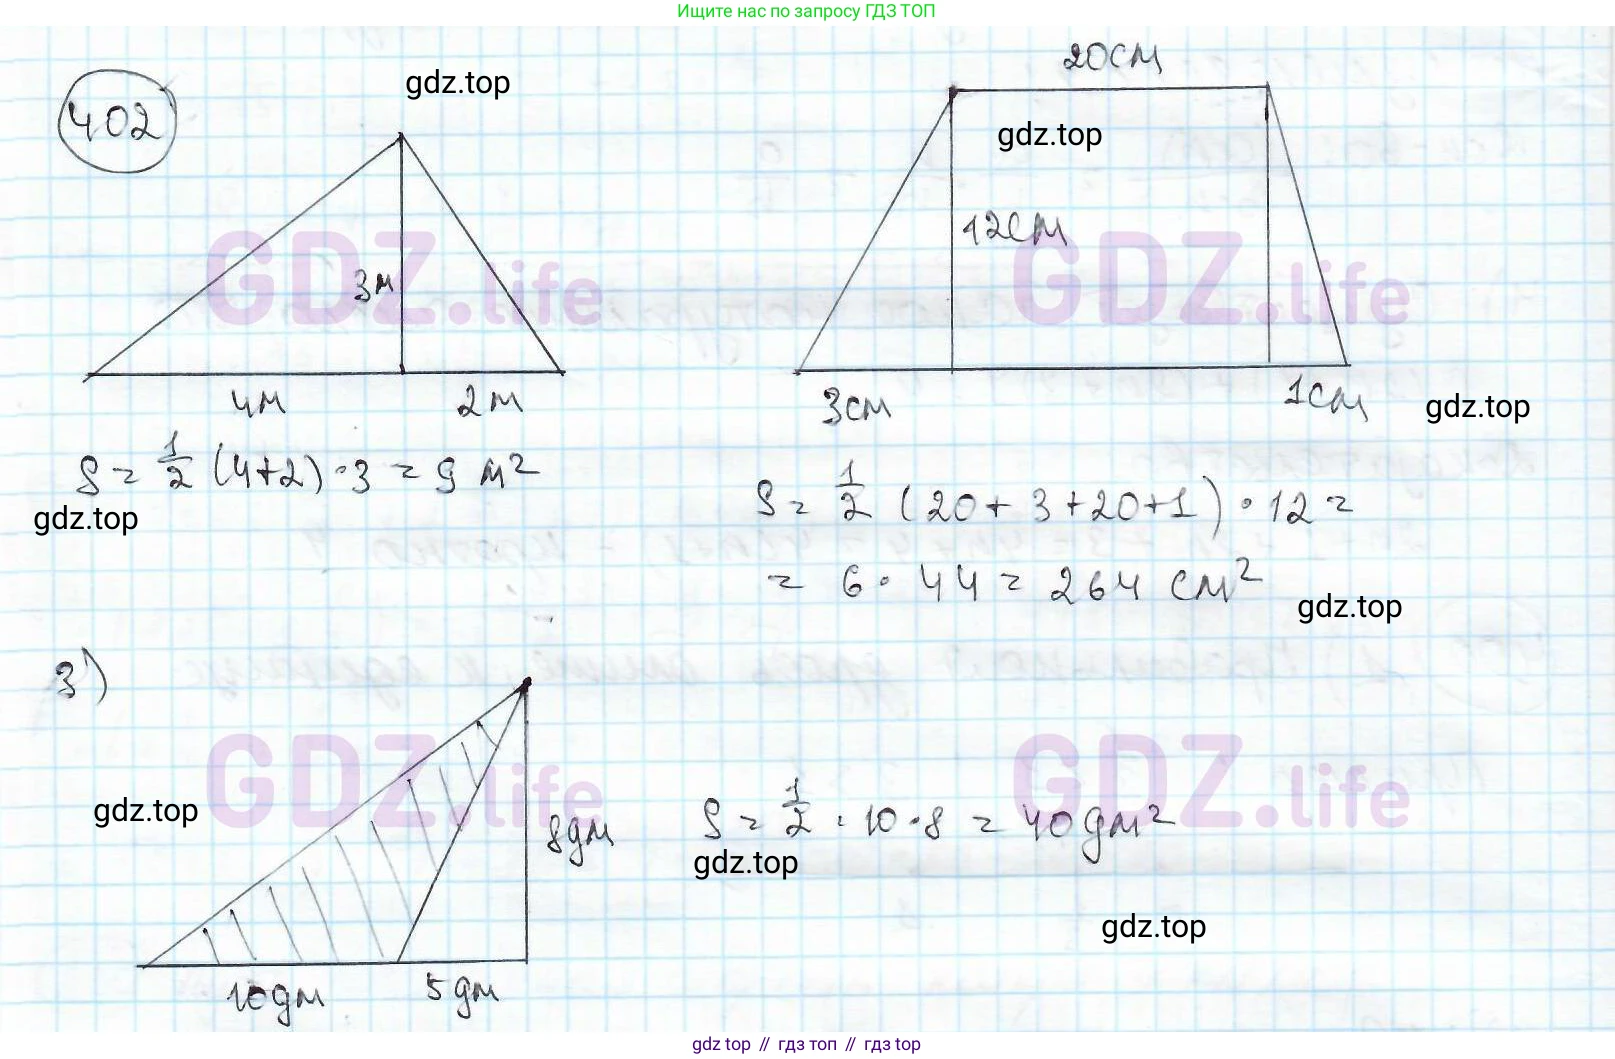 Ищите нас по запросу ГДЗ ТОП
402
gdz.top
3м
4м
2м
S = 1/2 (4+2)·3 = 9 м²
gdz.top
20см
gdz.top
12см
3см
1см
gdz.top
S = 1/2 (20+3+20+1)·12 =
= 6·44 = 264 см²
gdz.top
GDZ.life
GDZ.life
3)
gdz.top
8дм
10дм
5дм
S = 1/2 · 10·8 = 40дм²
gdz.top
gdz.top
GDZ.life
GDZ.life
gdz top // гдз топ // гдз top